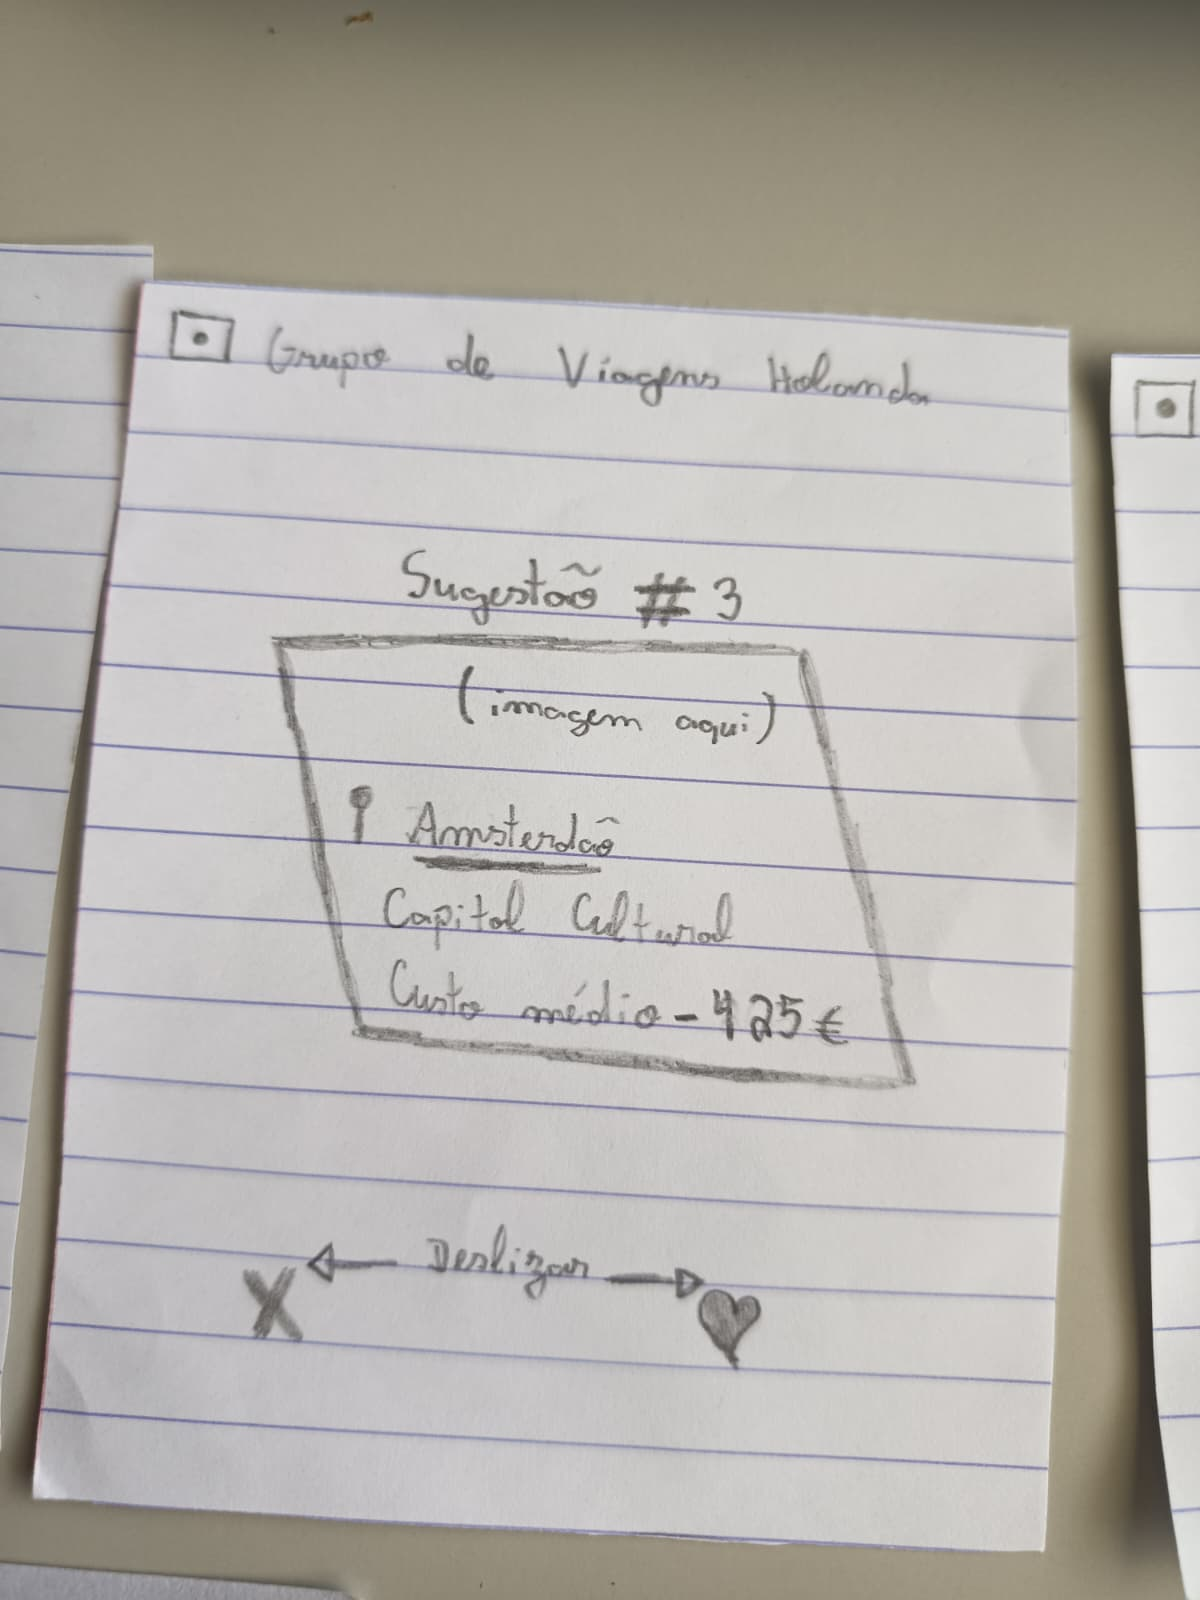 Grupo de Viagens Holanda
Sugestão #3
(imagem aqui)
Amsterdão
Capital Cultural
Custo médio - 425€
Deslizar
X